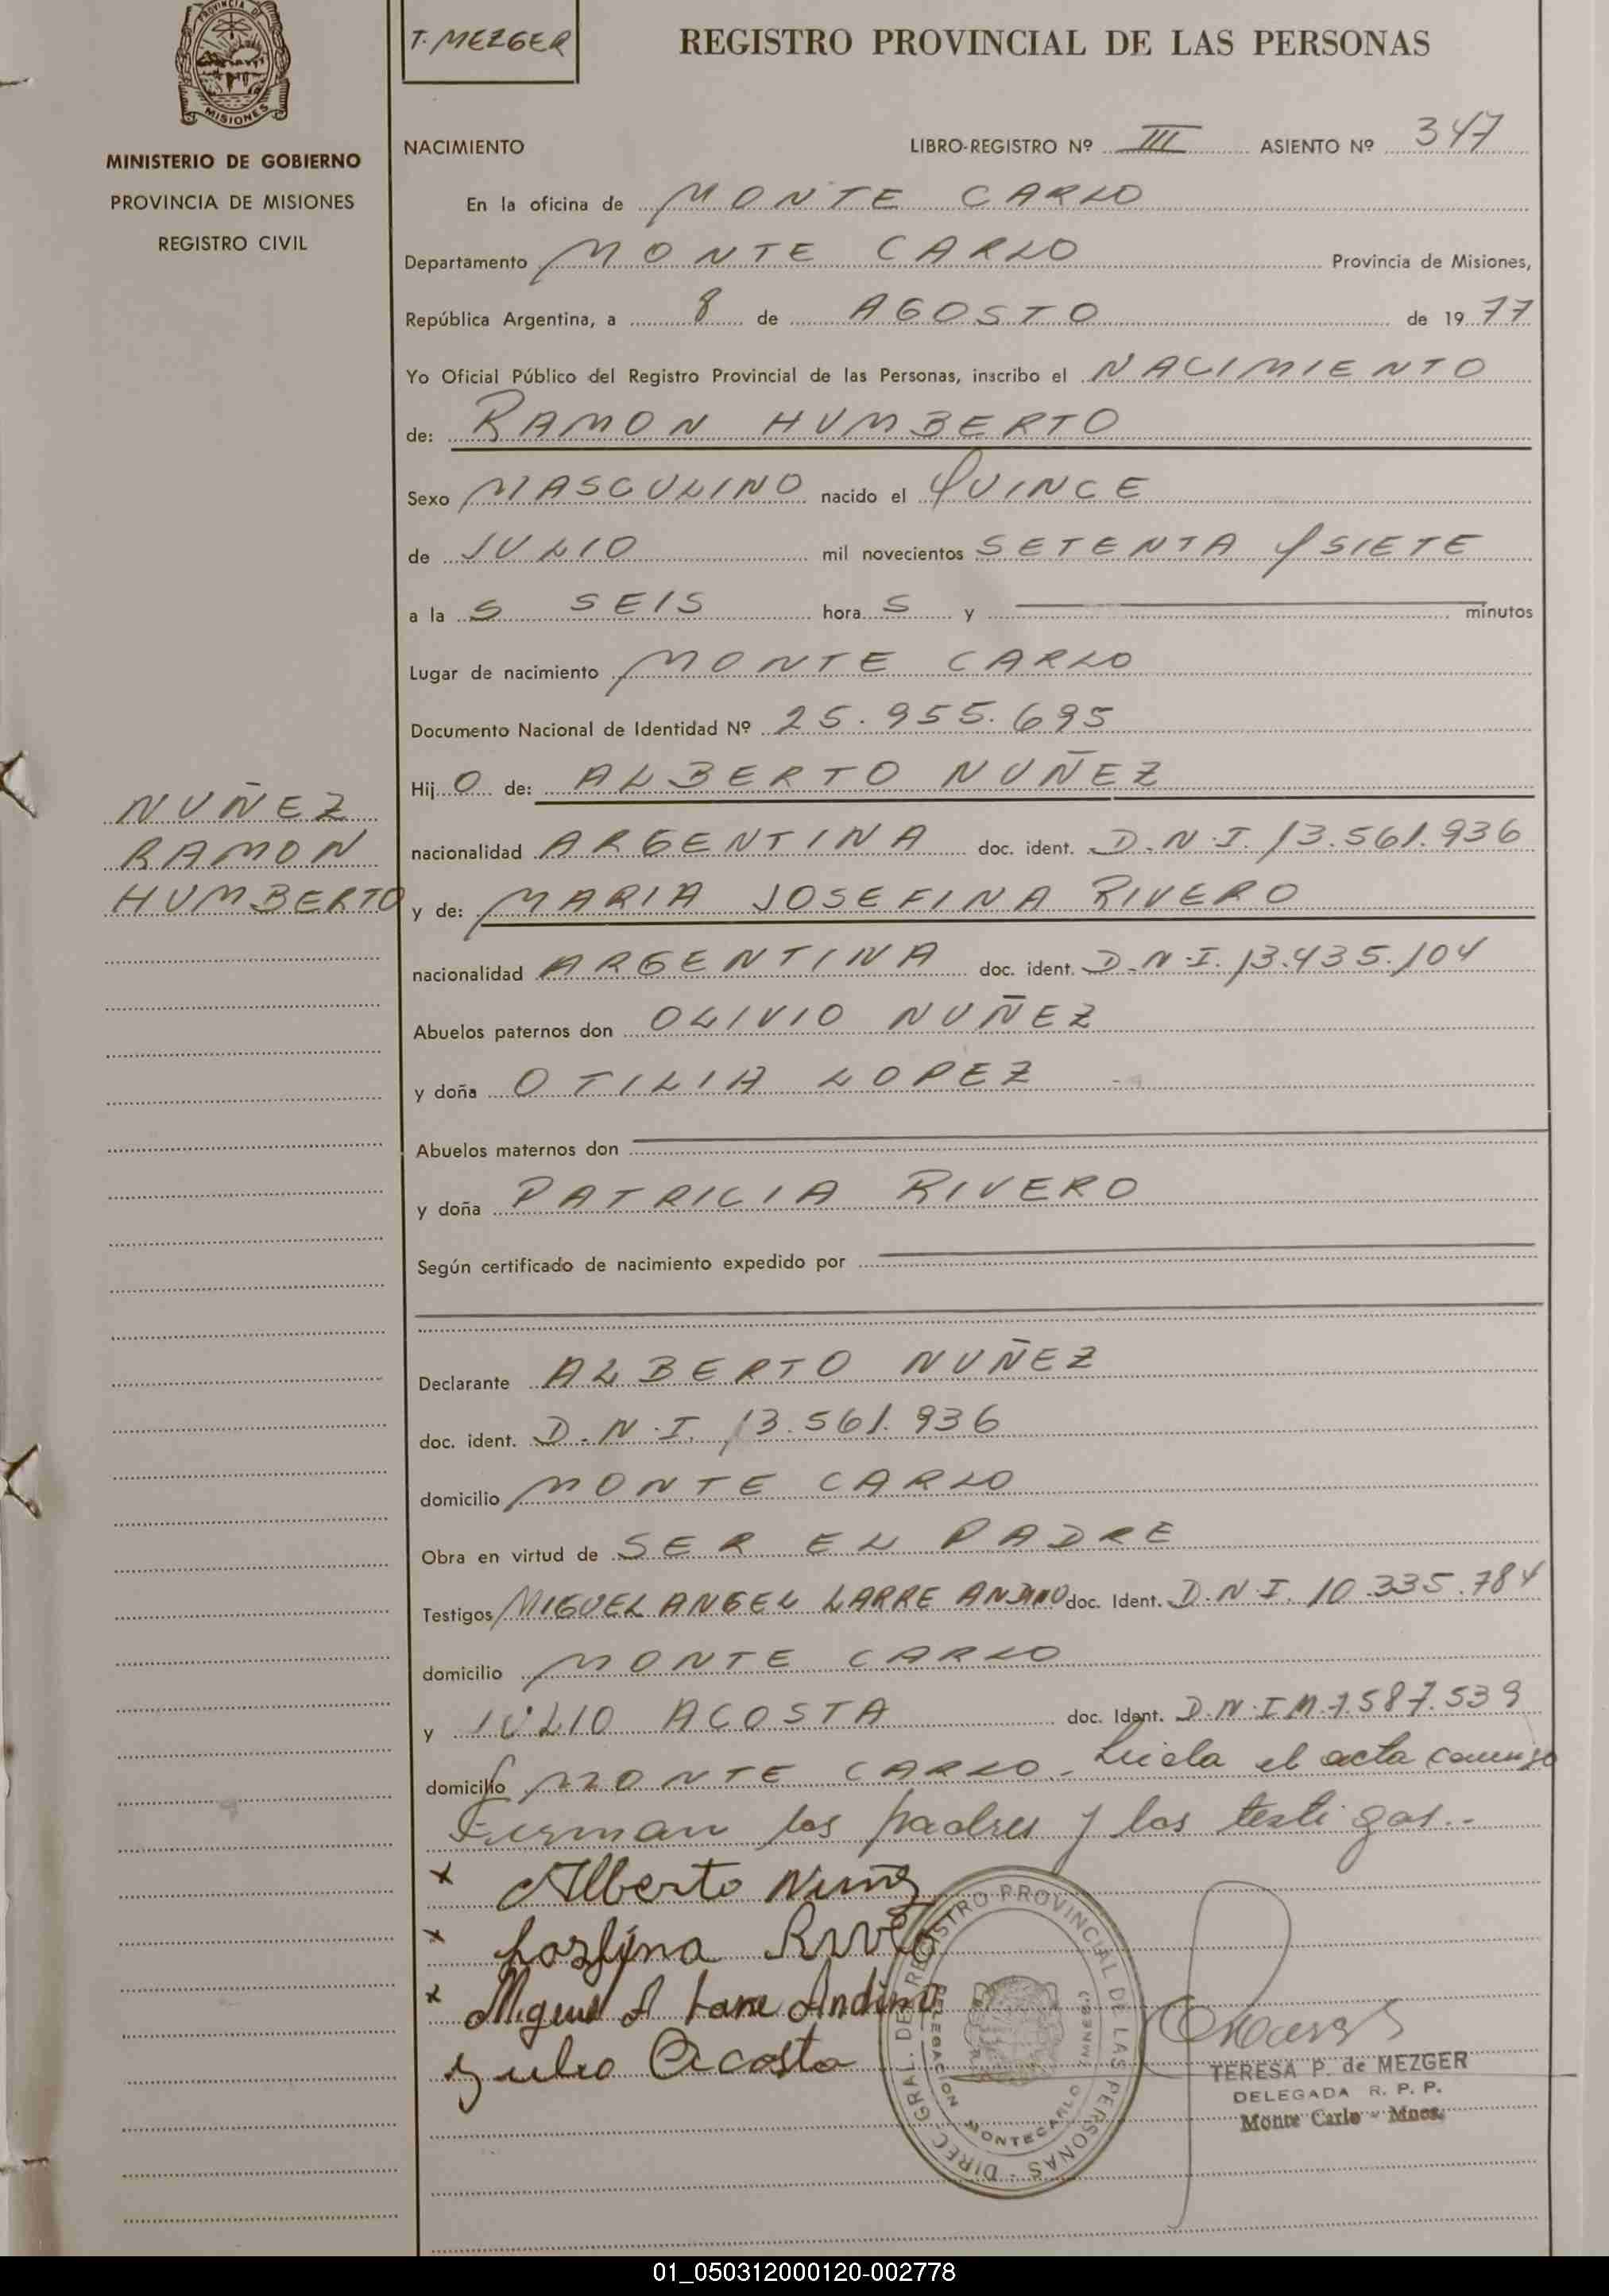 PROVINCIA DE
MISIONES
T. MEZGER
REGISTRO PROVINCIAL DE LAS PERSONAS
MINISTERIO DE GOBIERNO
PROVINCIA DE MISIONES
REGISTRO CIVIL
NACIMIENTO LIBRO-REGISTRO Nº III ASIENTO Nº 347
En la oficina de MONTE CARLO
Departamento MONTE CARLO Provincia de Misiones,
República Argentina, a 8 de AGOSTO de 1977
Yo Oficial Público del Registro Provincial de las Personas, inscribo el NACIMIENTO
de: RAMON HUMBERTO
Sexo MASCULINO nacido el QUINCE
de JULIO mil novecientos SETENTA Y SIETE
a la S SEIS hora S y minutos
Lugar de nacimiento MONTE CARLO
Documento Nacional de Identidad Nº 25.955.695
Hijo de: ALBERTO NUÑEZ
NUÑEZ
RAMON
HUMBERTO
nacionalidad ARGENTINA doc. ident. D.N.I. 13.561.936
y de: MARIA JOSEFINA RIVERO
nacionalidad ARGENTINA doc. ident. D.N.I. 13.435.104
Abuelos paternos don OLIVIO NUÑEZ
y doña OTILIA LOPEZ
Abuelos maternos don
y doña PATRICIA RIVERO
Según certificado de nacimiento expedido por
Declarante ALBERTO NUÑEZ
doc. ident. D.N.I. 13.561.936
domicilio MONTE CARLO
Obra en virtud de SER EL PADRE
Testigos MIGUEL ANGEL LARRE ANDINO doc. Ident. D.N.I. 10.335.784
domicilio MONTE CARLO
y JULIO ACOSTA doc. Ident. D.N.I M.7.587.539
domicilio MONTE CARLO. Leida el acta
Firman los padres y los testigos.-
x Alberto Nuñez
x Rivero
x Miguel A Larre Andino
Julio Acosta
DIREC. GRAL. DE REGISTRO PROVINCIAL DE LAS PERSONAS
DELEGACION MONTECARLO (MNES.)
TERESA P. de MEZGER
DELEGADA R. P. P.
Monte Carlo - Mnes.
01_050312000120-002778